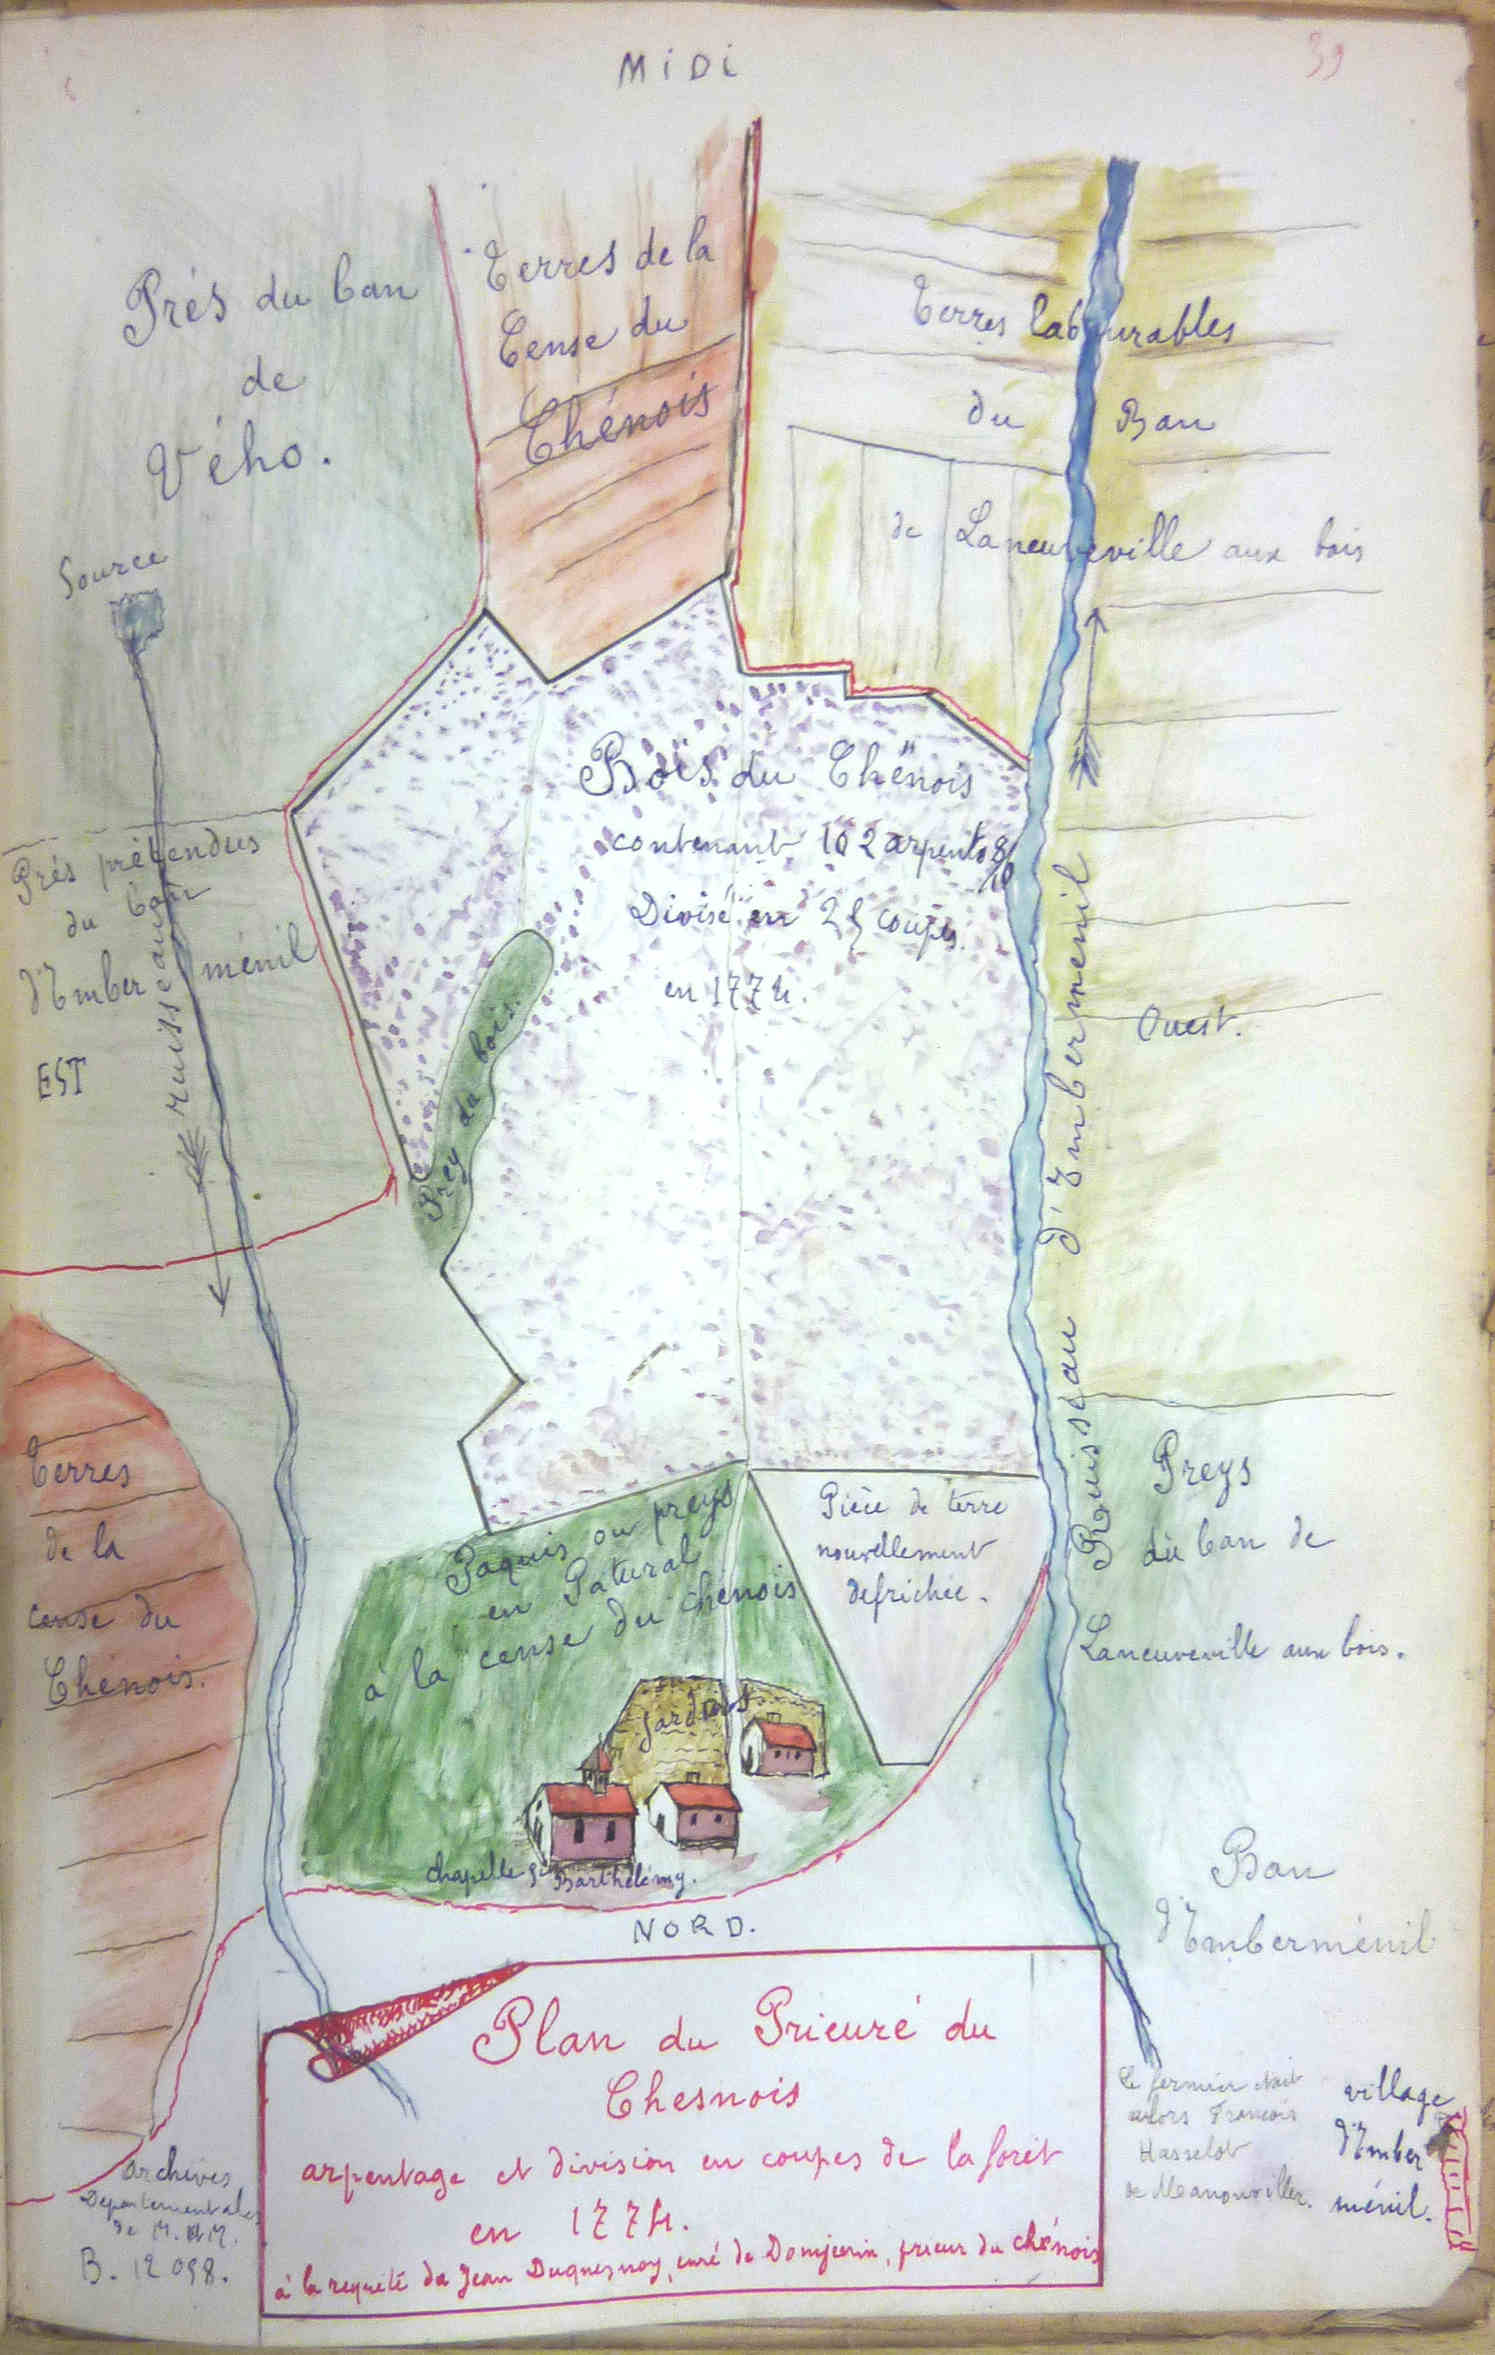 MIDI
39
Prés du ban
de
Vého.
Terres de la
Cense du
Chénois
Terres labourables
du Ban
de Laneuveville aux bois
Source
Bois du Chênois
contenant 102 arpents 8/10
Divisé en 25 coupes.
en 1774.
Prés prétendus
du ban
d'Emberménil
EST
ruisseau
Prey du bois.
Ruisseau d'Embermenil
Ouest.
Terres
de la
cense du
Chénois.
Paquis ou preys
en Patural
à la cense du chénois
Pièce de terre
nouvellement
defrichée.
Preys
du ban de
Laneuveville aux bois.
Jardins
chapelle St Barthélémy.
NORD.
Ban
d'Emberménil
Plan du Prieuré du
Chesnois
arpentage et division en coupes de la forêt
en 1774.
à la requête de Jean Duquesnoy, curé de Domjevin, prieur du chénois
Archives
Departementales
de M. et M.
B. 12 098.
Le fermier était
alors François
Hasselot
de Manonviller.
village
d'Ember
ménil.